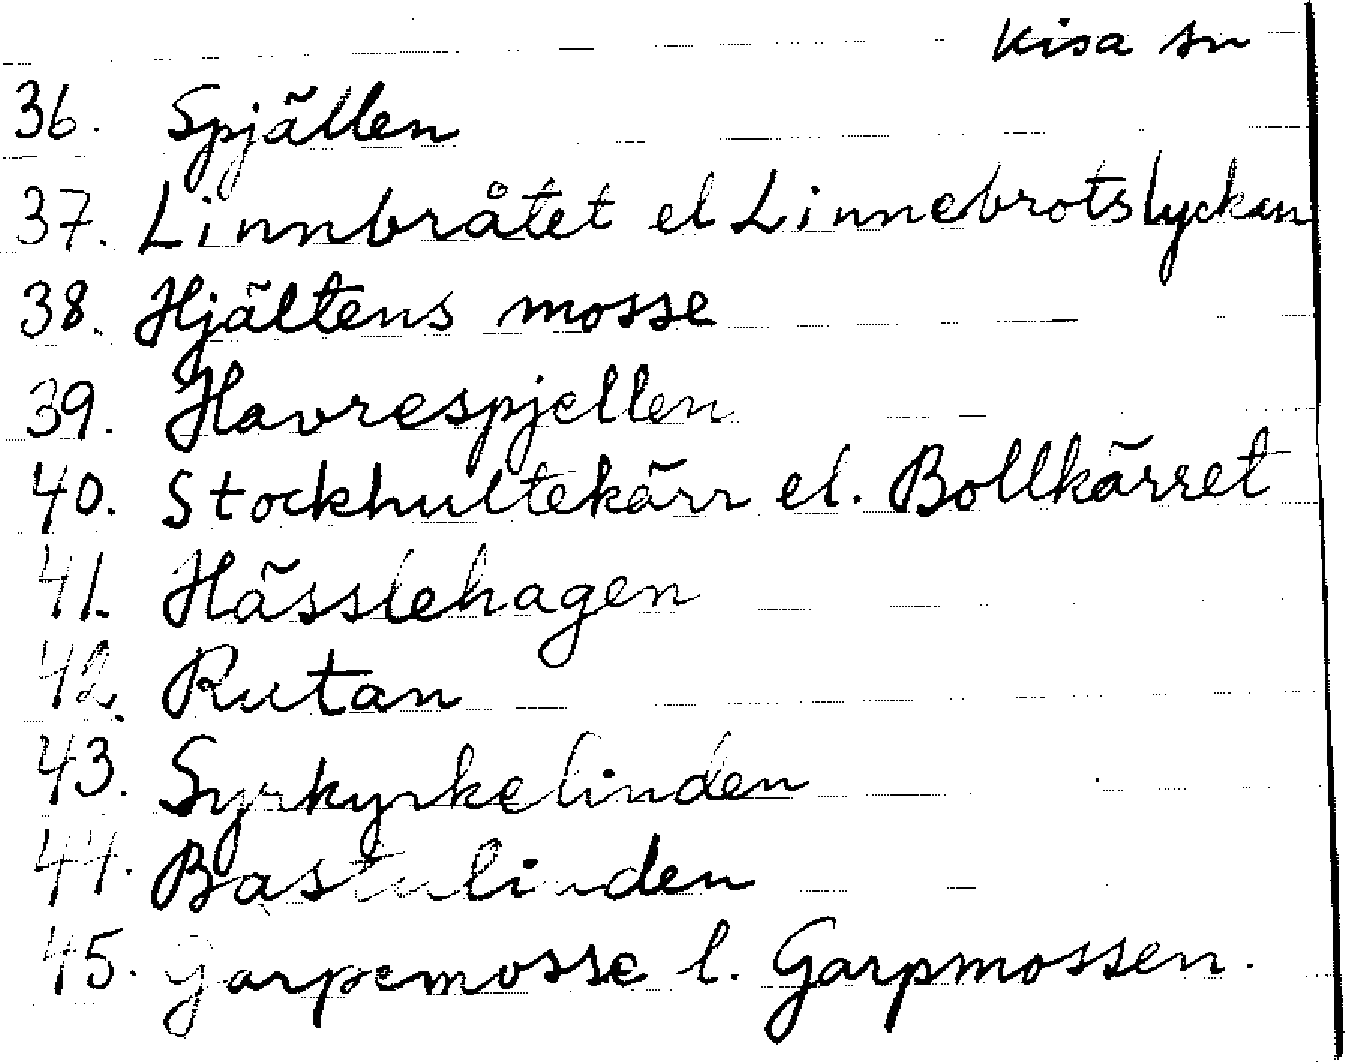 Kisa sn
36. Spjällen
37. Linnbråtet el Linnebrotslyckan
38. Hjältens mosse
39. Havrespjellen
40. Stockhultekärr el. Bollkärret
41. Hässlehagen
42. Rutan
43. Syrkyrkelinden
44. Bastulinden
45. Garpemosse l. Garpmossen.